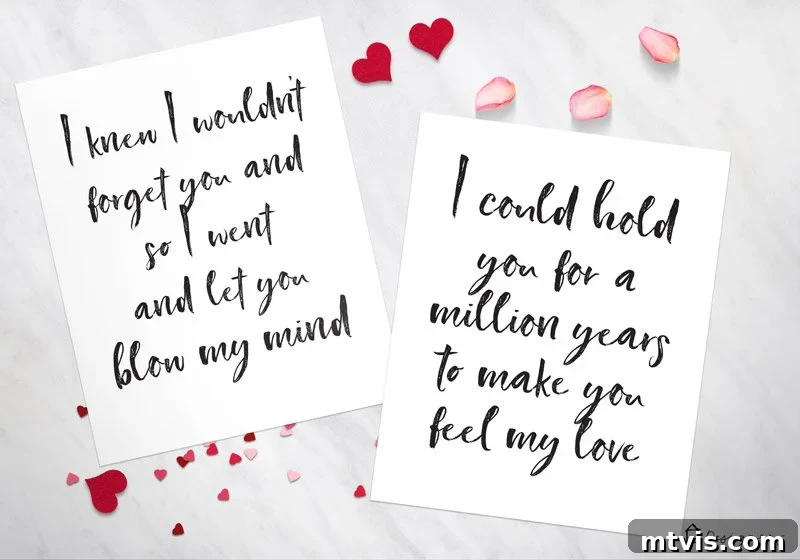 I knew I wouldn't
forget you and
so I went
and let you
blow my mind
I could hold
you for a
million years
to make you
feel my love
mtvis.com